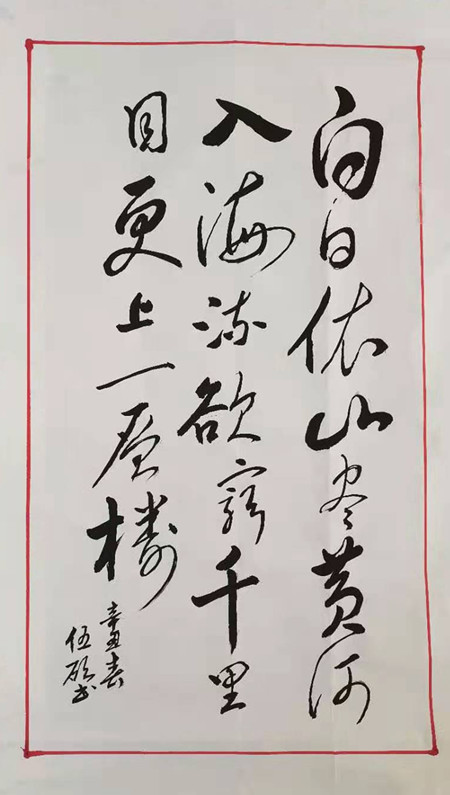 白日依山尽黄河
入海流欲窮千里
目更上一層樓
辛丑春
伍
书